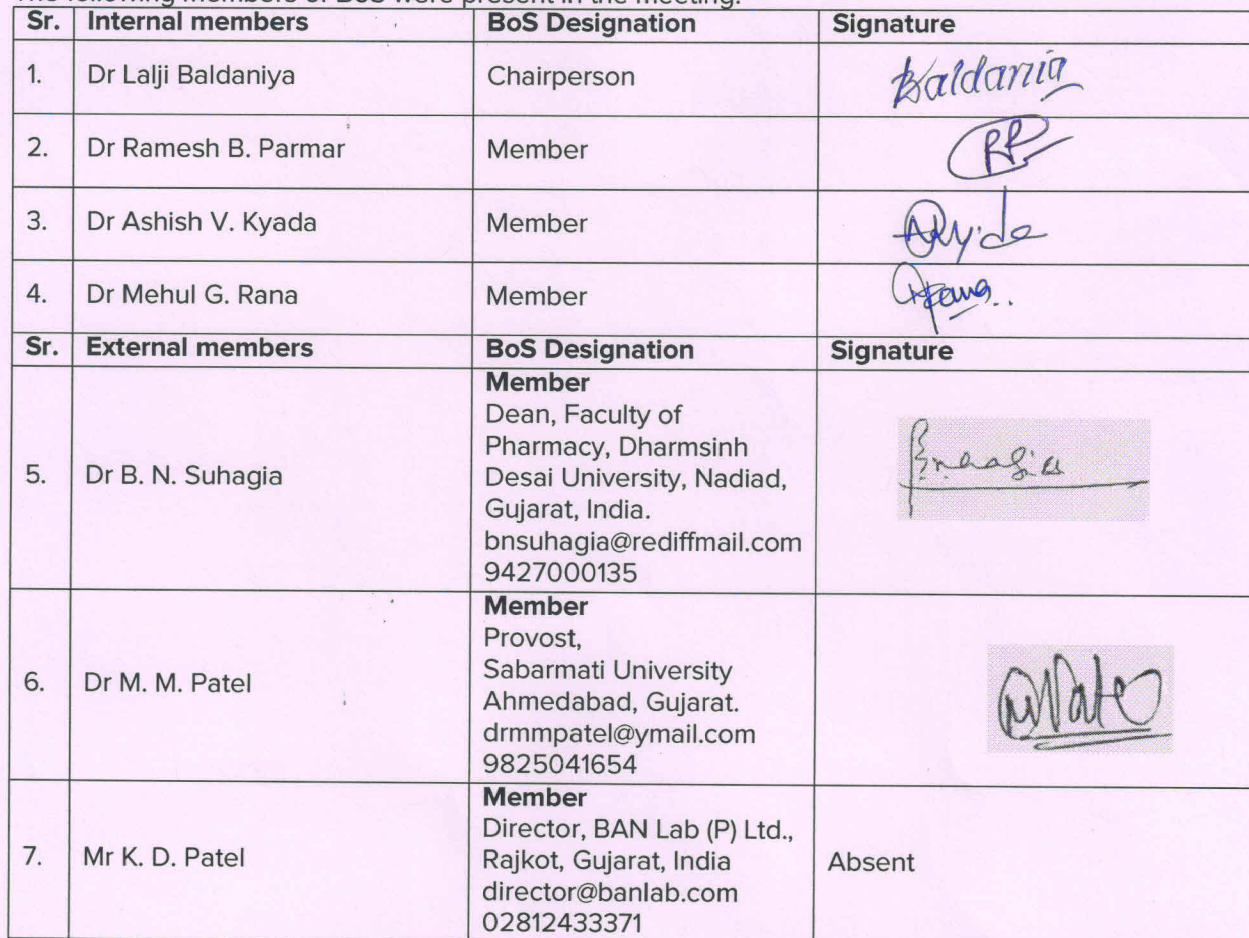 The following members of BoS were present in the meeting.
Sr. Internal members BoS Designation Signature
1. Dr Lalji Baldaniya Chairperson Baldania
2. Dr Ramesh B. Parmar Member RP
3. Dr Ashish V. Kyada Member
4. Dr Mehul G. Rana Member
Sr. External members BoS Designation Signature
Member
Dean, Faculty of
Pharmacy, Dharmsinh
5. Dr B. N. Suhagia Desai University, Nadiad,
Gujarat, India.
bnsuhagia@rediffmail.com
9427000135
Member
Provost,
Sabarmati University
6. Dr M. M. Patel Ahmedabad, Gujarat.
drmmpatel@ymail.com
9825041654
Member
Director, BAN Lab (P) Ltd.,
7. Mr K. D. Patel Rajkot, Gujarat, India Absent
director@banlab.com
02812433371